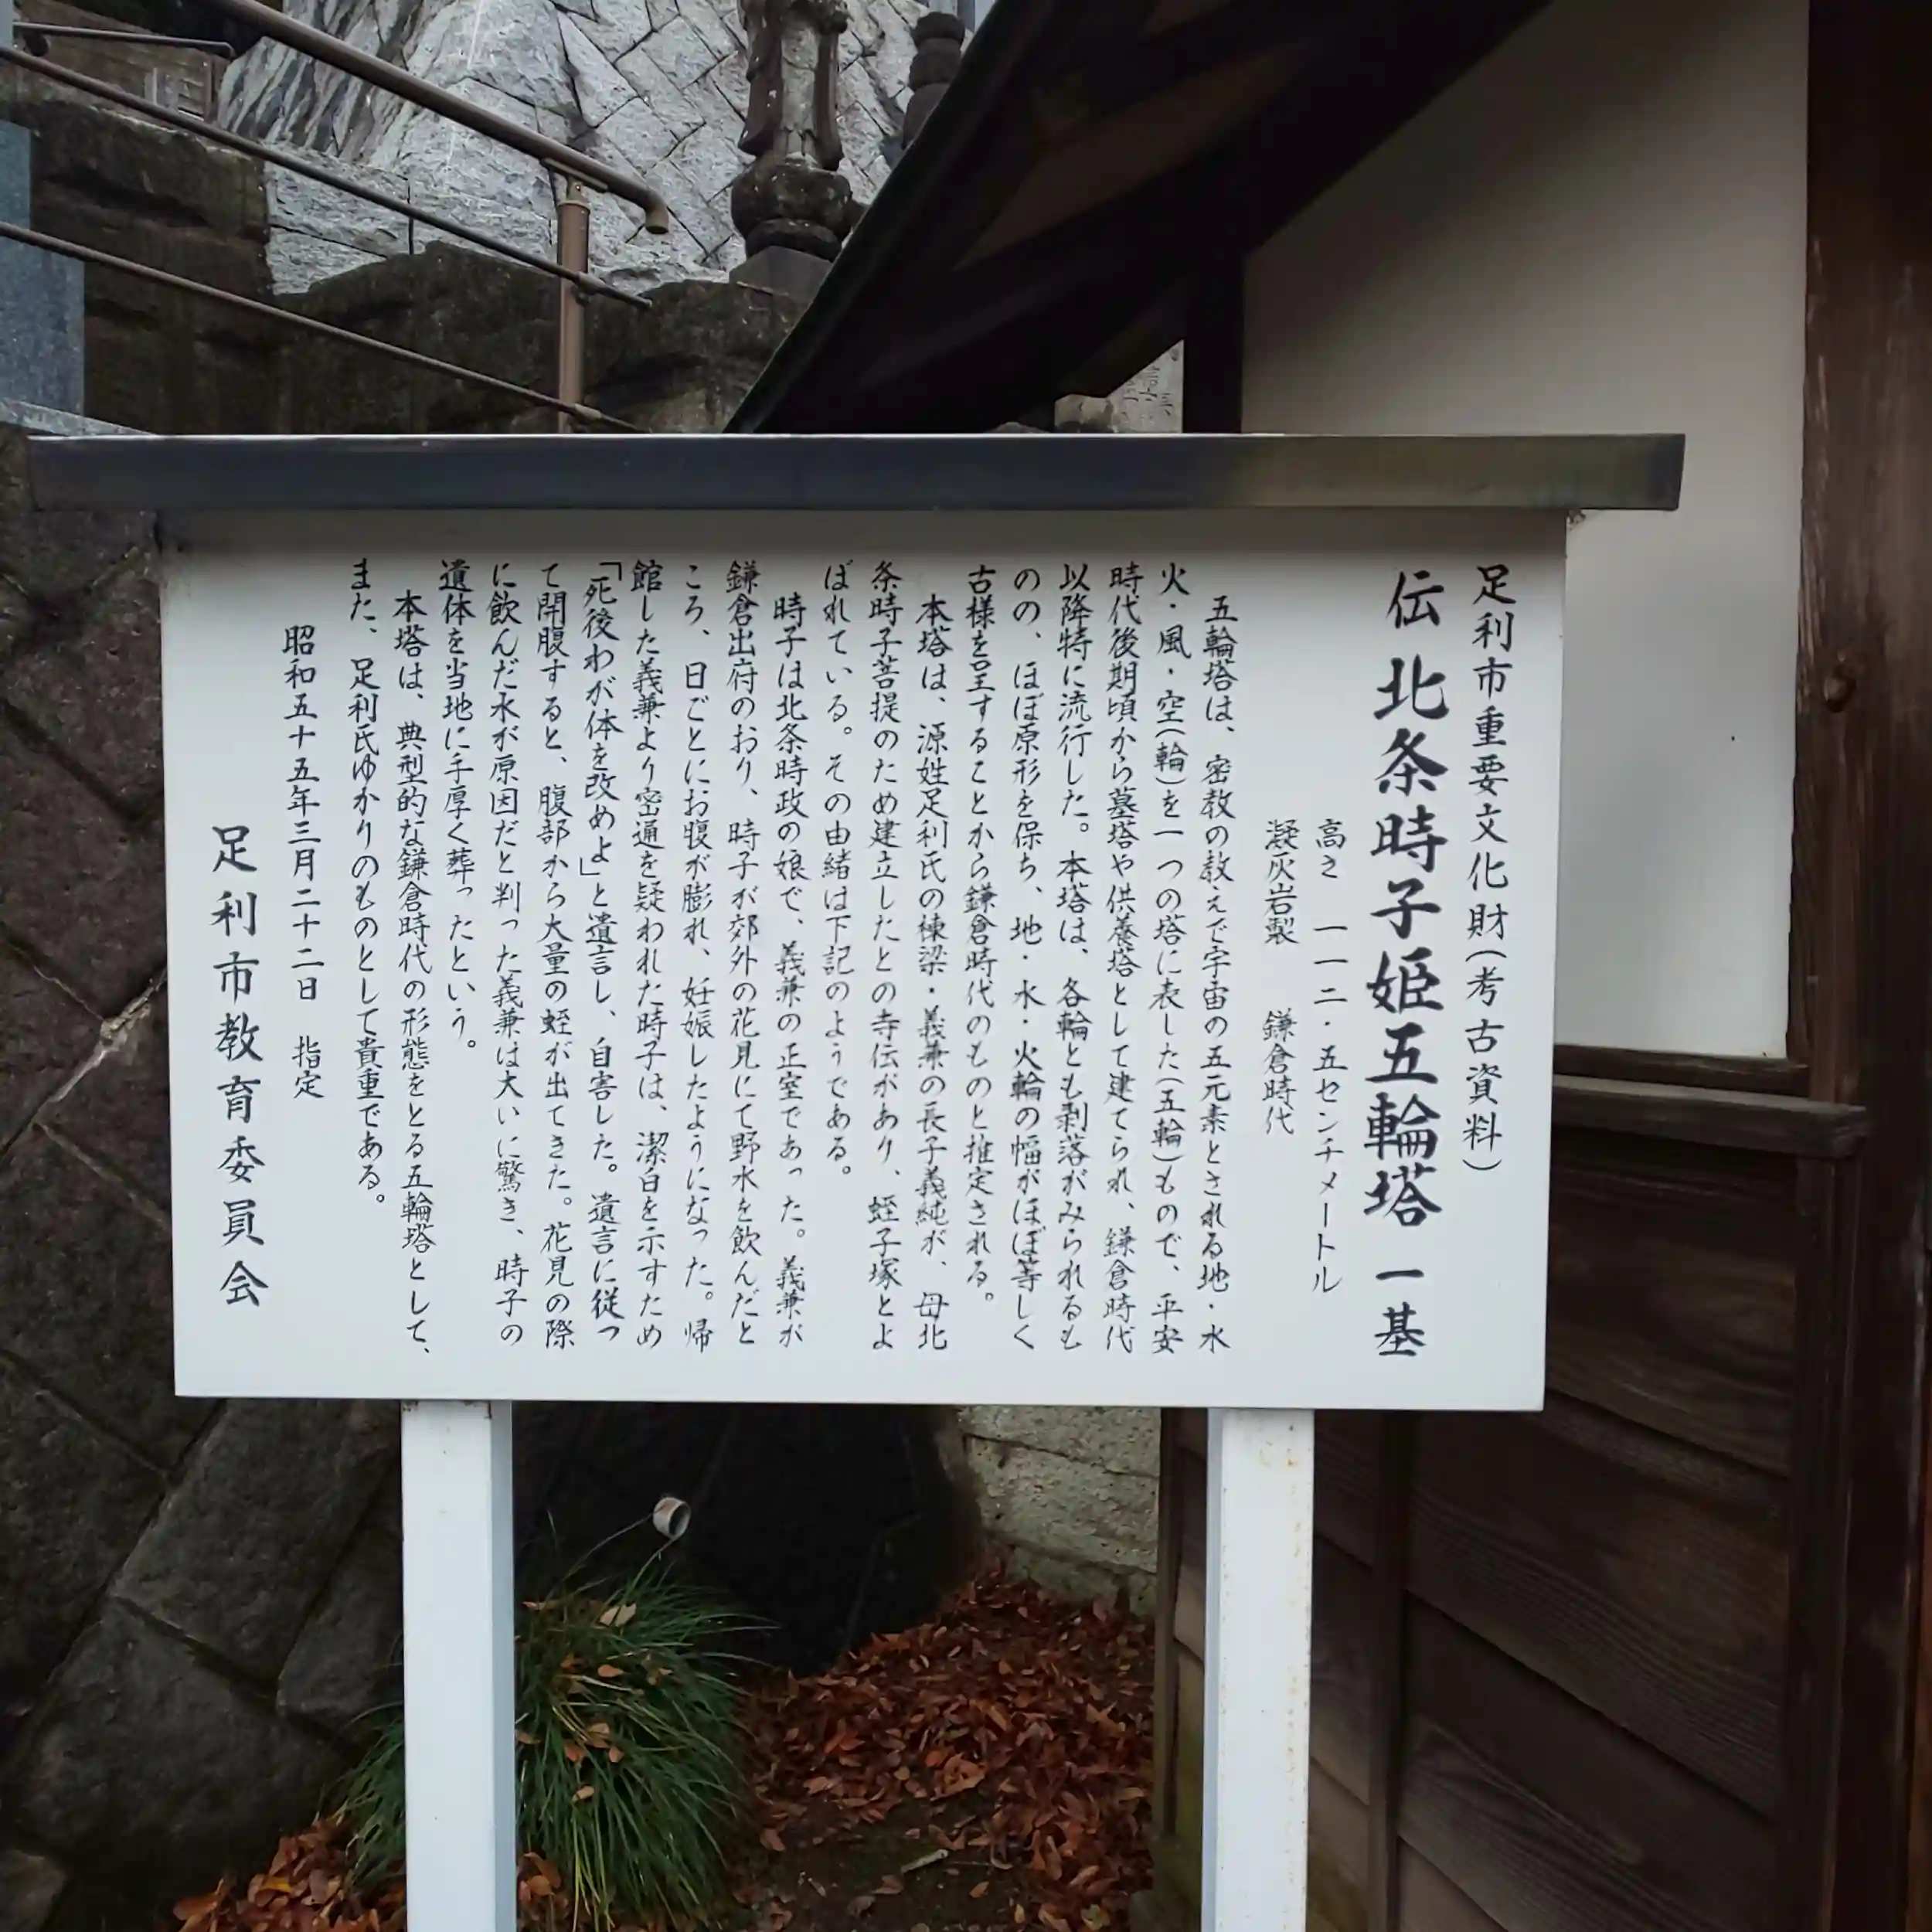 足利市重要文化財(考古資料)
伝 北条時子姫五輪塔 一基
高さ 一一二・五センチメートル
凝灰岩製 鎌倉時代
五輪塔は、密教の教えで宇宙の五元素とされる地・水
火・風・空(輪)を一つの塔に表した(五輪)もので、平安
時代後期頃から墓塔や供養塔として建てられ、鎌倉時代
以降特に流行した。本塔は、各輪とも剥落がみられるも
のの、ほぼ原形を保ち、地・水・火輪の幅がほぼ等しく
古様を呈することから鎌倉時代のものと推定される。
本塔は、源姓足利氏の棟梁・義兼の長子義純が、母北
条時子菩提のため建立したとの寺伝があり、蛭子塚とよ
ばれている。その由緒は下記のようである。
時子は北条時政の娘で、義兼の正室であった。義兼が
鎌倉出府のおり、時子が郊外の花見にて野水を飲んだと
ころ、日ごとにお腹が膨れ、妊娠したようになった。帰
館した義兼より密通を疑われた時子は、潔白を示すため
「死後わが体を改めよ」と遺言し、自害した。遺言に従っ
て開腹すると、腹部から大量の蛭が出てきた。花見の際
に飲んだ水が原因だと判った義兼は大いに驚き、時子の
遺体を当地に手厚く葬ったという。
本塔は、典型的な鎌倉時代の形態をとる五輪塔として、
また、足利氏ゆかりのものとして貴重である。
昭和五十五年三月二十二日 指定
足利市教育委員会